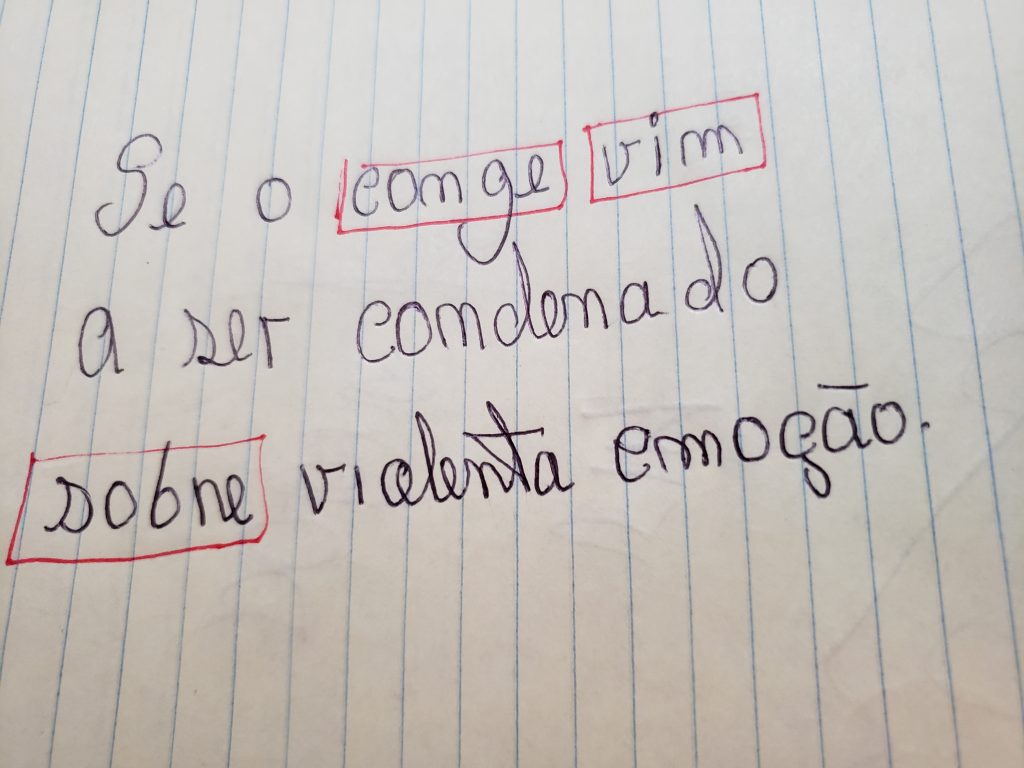 Se o conge vim
a ser condenado
sobre violenta emoção.